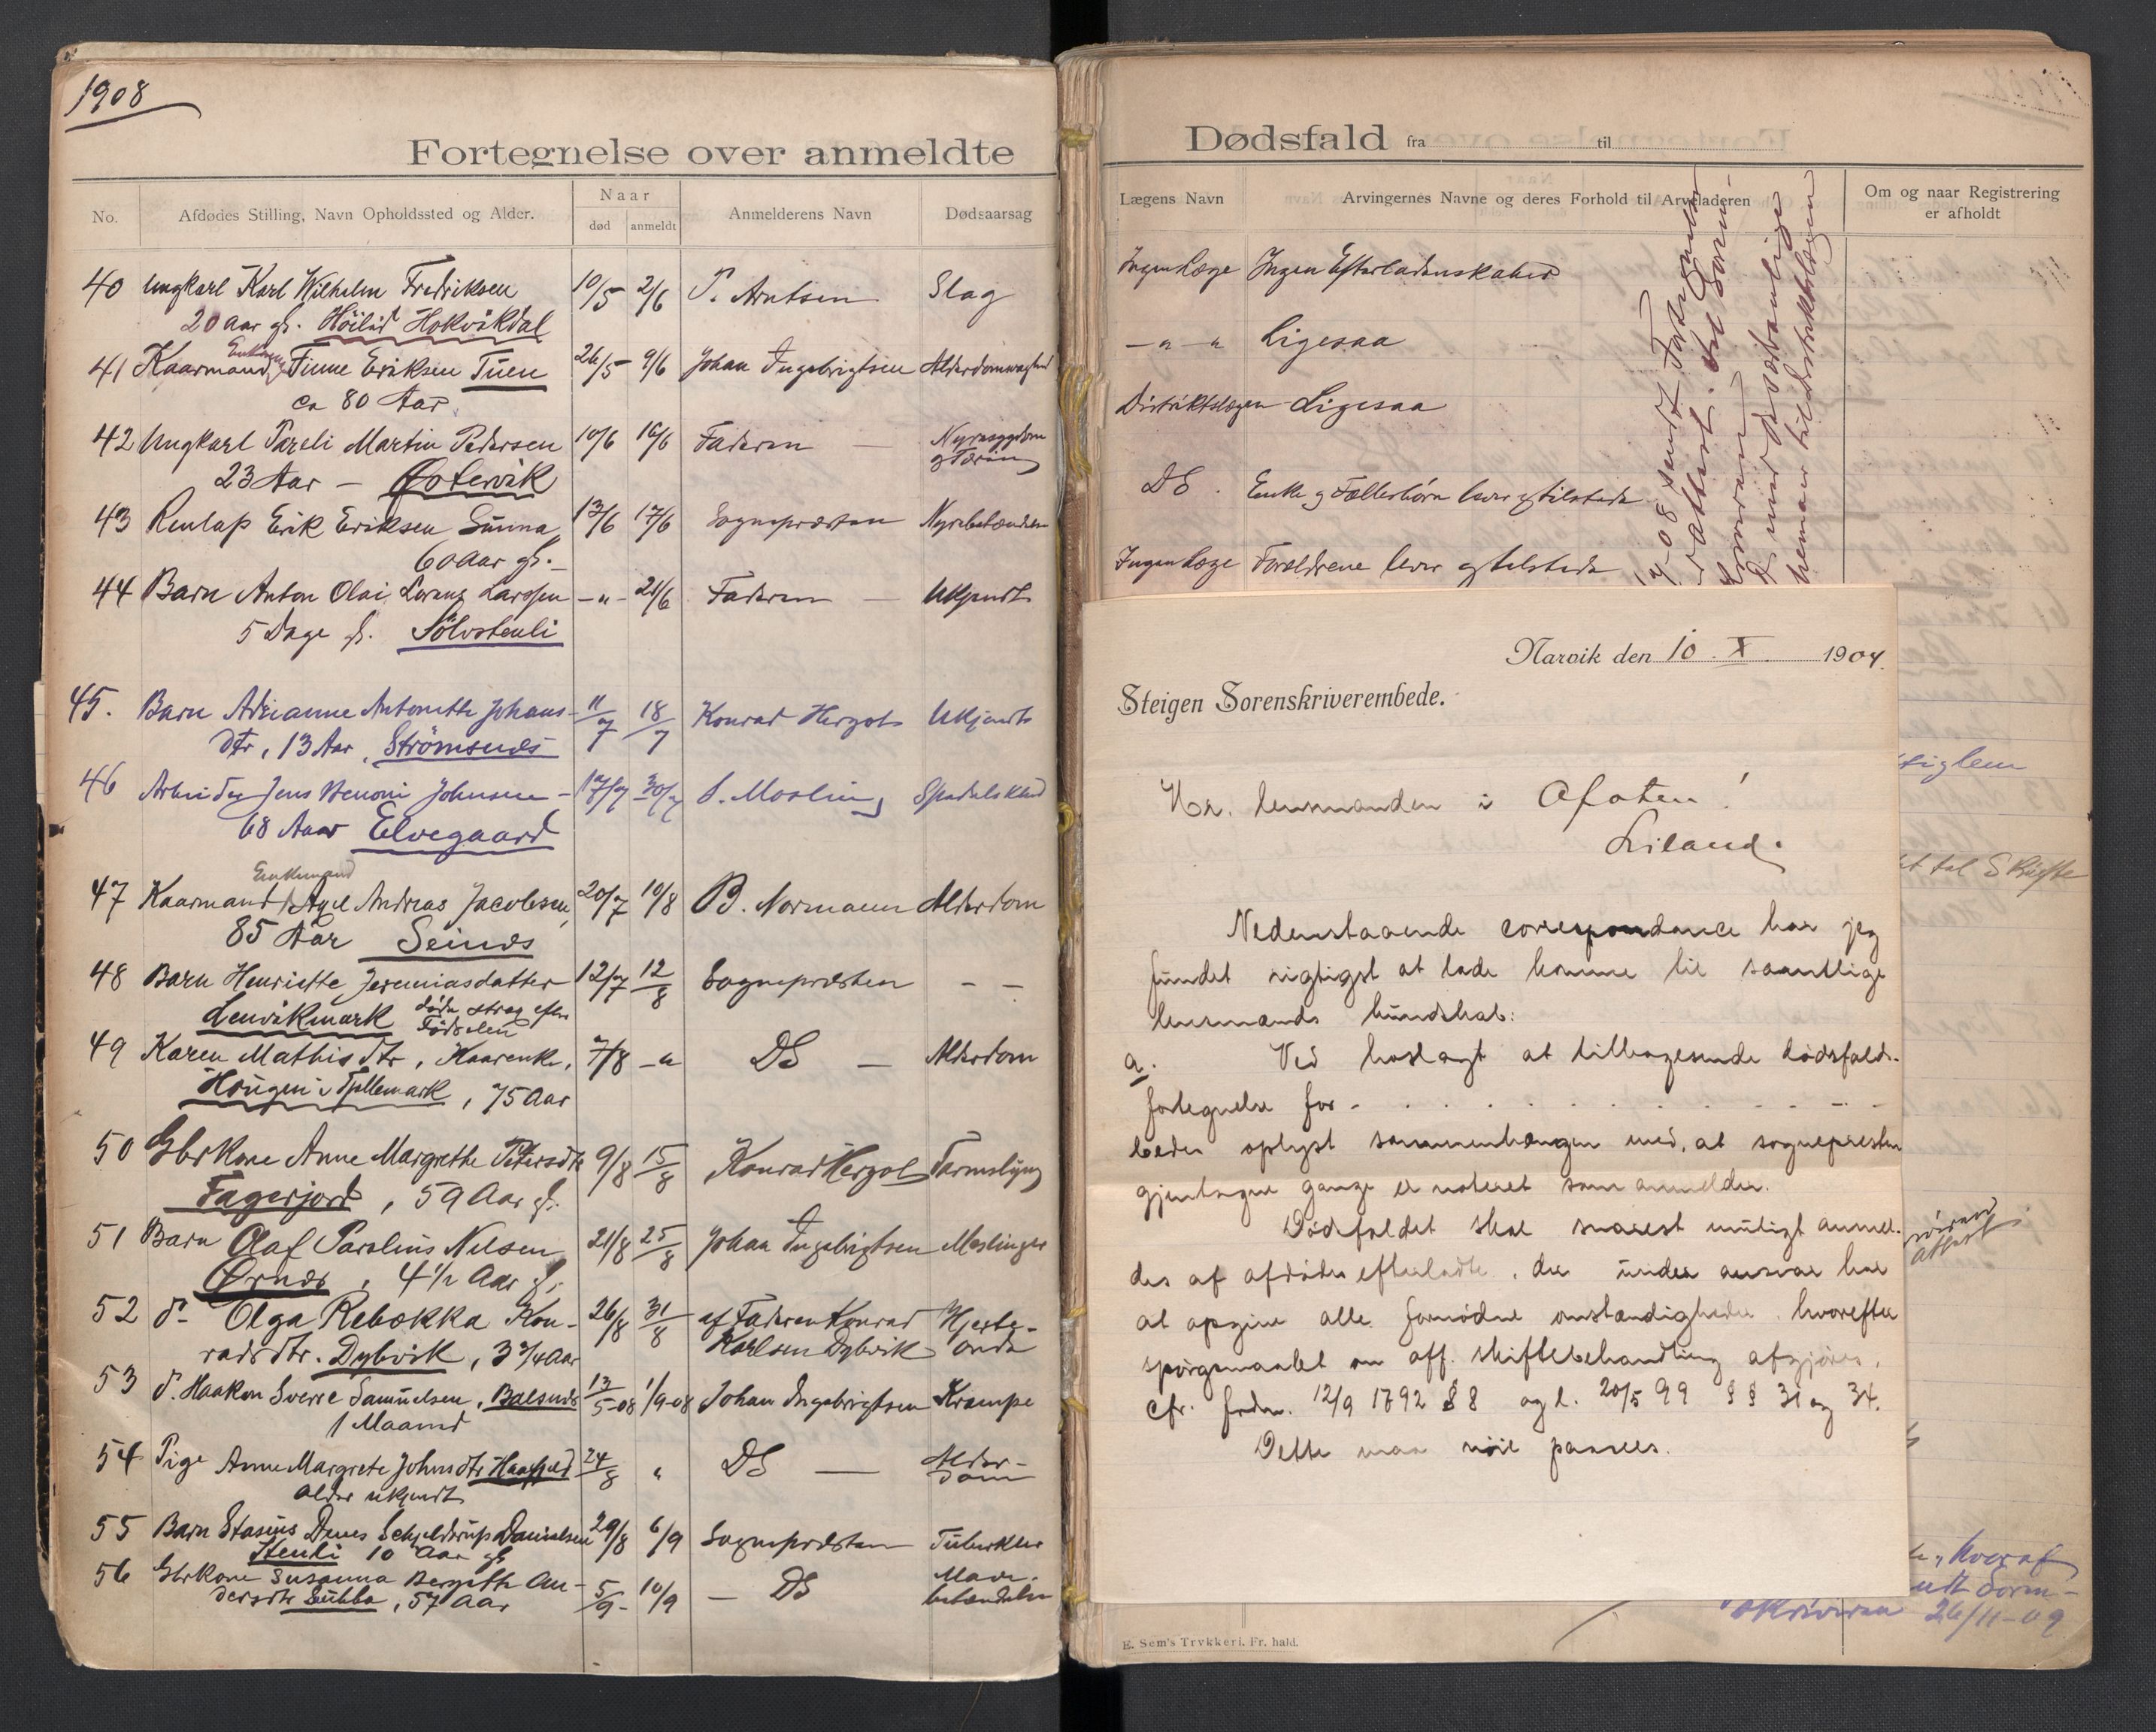 1908
Fortegnelse over anmeldte
No. Afdødes Stilling, Navn Opholdssted og Alder. Naar død anmeldt Anmelderens Navn Dødsaarsag
40 Ungkarl Karl Wilhelm Fredriksen 10/5 2/6 P. Arntsen Slag
20 Aar gl. Höilid Hokvikdal
Enkemand
41 Kaarmand Finne Eriksen Tuen 26/5 9/6 Johan Ingebrigtsen
ca 80 Aar
42 Ungkarl Pareli Martin Pedersen 10/6 16/6 Faderen — Nyresygdom
23 Aar — og Tæring
43 Renlap Erik Eriksen Sunna 13/6 17/6 Sognepræsten
60 Aar gl. -
44 Barn Anton Olai Lorenz Larssen -"- 21/6 Faderen — Ukjendt
5 Dage gl. Sölvstenli
45. Barn Adrianne Antonette Johans- 11/7 18/7 Konrad Hergot Ukjendt
dtr, 13 Aar, Strömsnes
46 Arbeider Jens Benoni Johnsen - 17/7 30/7
68 Aar Elvegaard
Enkemand
47 Kaarmand Andreas Jacobsen, 20/7 10/8 B. Normann Alderdom
85 Aar Seines
48 Barn Henriette Jeremiasdatter 12/7 12/8 Sognepræsten - -
Lenvikmark døde strax efter
Fødselen
49 Karen Mathisdtr, Kaarenke, 7/8 -" DS — Alderdom
Haugen i Tjellemark, 75 Aar
50 Gbrkone Anne Margrethe Petersdtr 9/8 15/8 Konrad Hergot Tarmslyng
Fagerjord, 59 Aar gl.
51 Barn Olaf Parelius Nilsen 21/8 25/8 Johan Ingebrigtsen Meslinger
Ørnes, 4 1/2 Aar gl.
52 d- Olga Rebekka Kon- 26/8 31/8 af Faderen Konrad Hjerte-
radsdtr. Dybvik, 3 3/4 Aar Karlsen Dybvik onde
53 d. Haakon Sverre Samuelsen, Balsnes 13/5-08 1/9-08 Johan Ingebrigtsen Krampe
1 Maaned
54 Pige Anne Margrete Johnsdtr 24/8 " DS — Alder-
Alder ukjendt dom
55 Barn Stasius Schjelderup Danielsen 29/8 6/9 Sognepræsten Tuberkler
Stenli 10 Aar gl
56 Gbrkone Susanna Bergitte An- 5/9- 10/9 — DS Mave-
dersdtr, 57 Aar betændelse
Dødsfald fra til
Lægens Navn Arvingernes Navne og deres Forhold til Arveladeren Om og naar Registrering
er afholdt
Ingen Læge Ingen Efterladenskaber
-"-" Ligesaa
Distriktslægen Ligesaa
DS. Enke og Fællesbørn lever og tilstede
Ingen Læge Forældrene lever og tilstede
Narvik den 10. X. 1904.
Steigen Sorenskriverembede.
Hr. lensmanden i Ofoten!
Liland.
Nedenstaaende correspondance har jeg
fundet rigtigst at lade komme til samtlige
lensmænds kundskab:
a. Ved hoslagt at tilbagesende dødsfalds-
fortegnelse for - . . . . . . . . - - -
bedes oplyst sammenhængen med, at sognepresten
gjentagne gange er noteret som anmelder.
Dødsfaldet skal snarest muligt anmel-
des af afdødes efterladte, der under ansvar har
at opgive alle fornødne omstændigheder, hvorefter
spørgsmaalet om off. skiftebehandling afgjøres,
cfr. frdn. 12/9 1792 § 8 og l. 20/5 99 § § 31 og 34.
Dette maa nøie passes.
til Skifte
hvoraf
Soren-
skriveren 26/11-09
E. Sem's Trykkeri, Fr. hald.